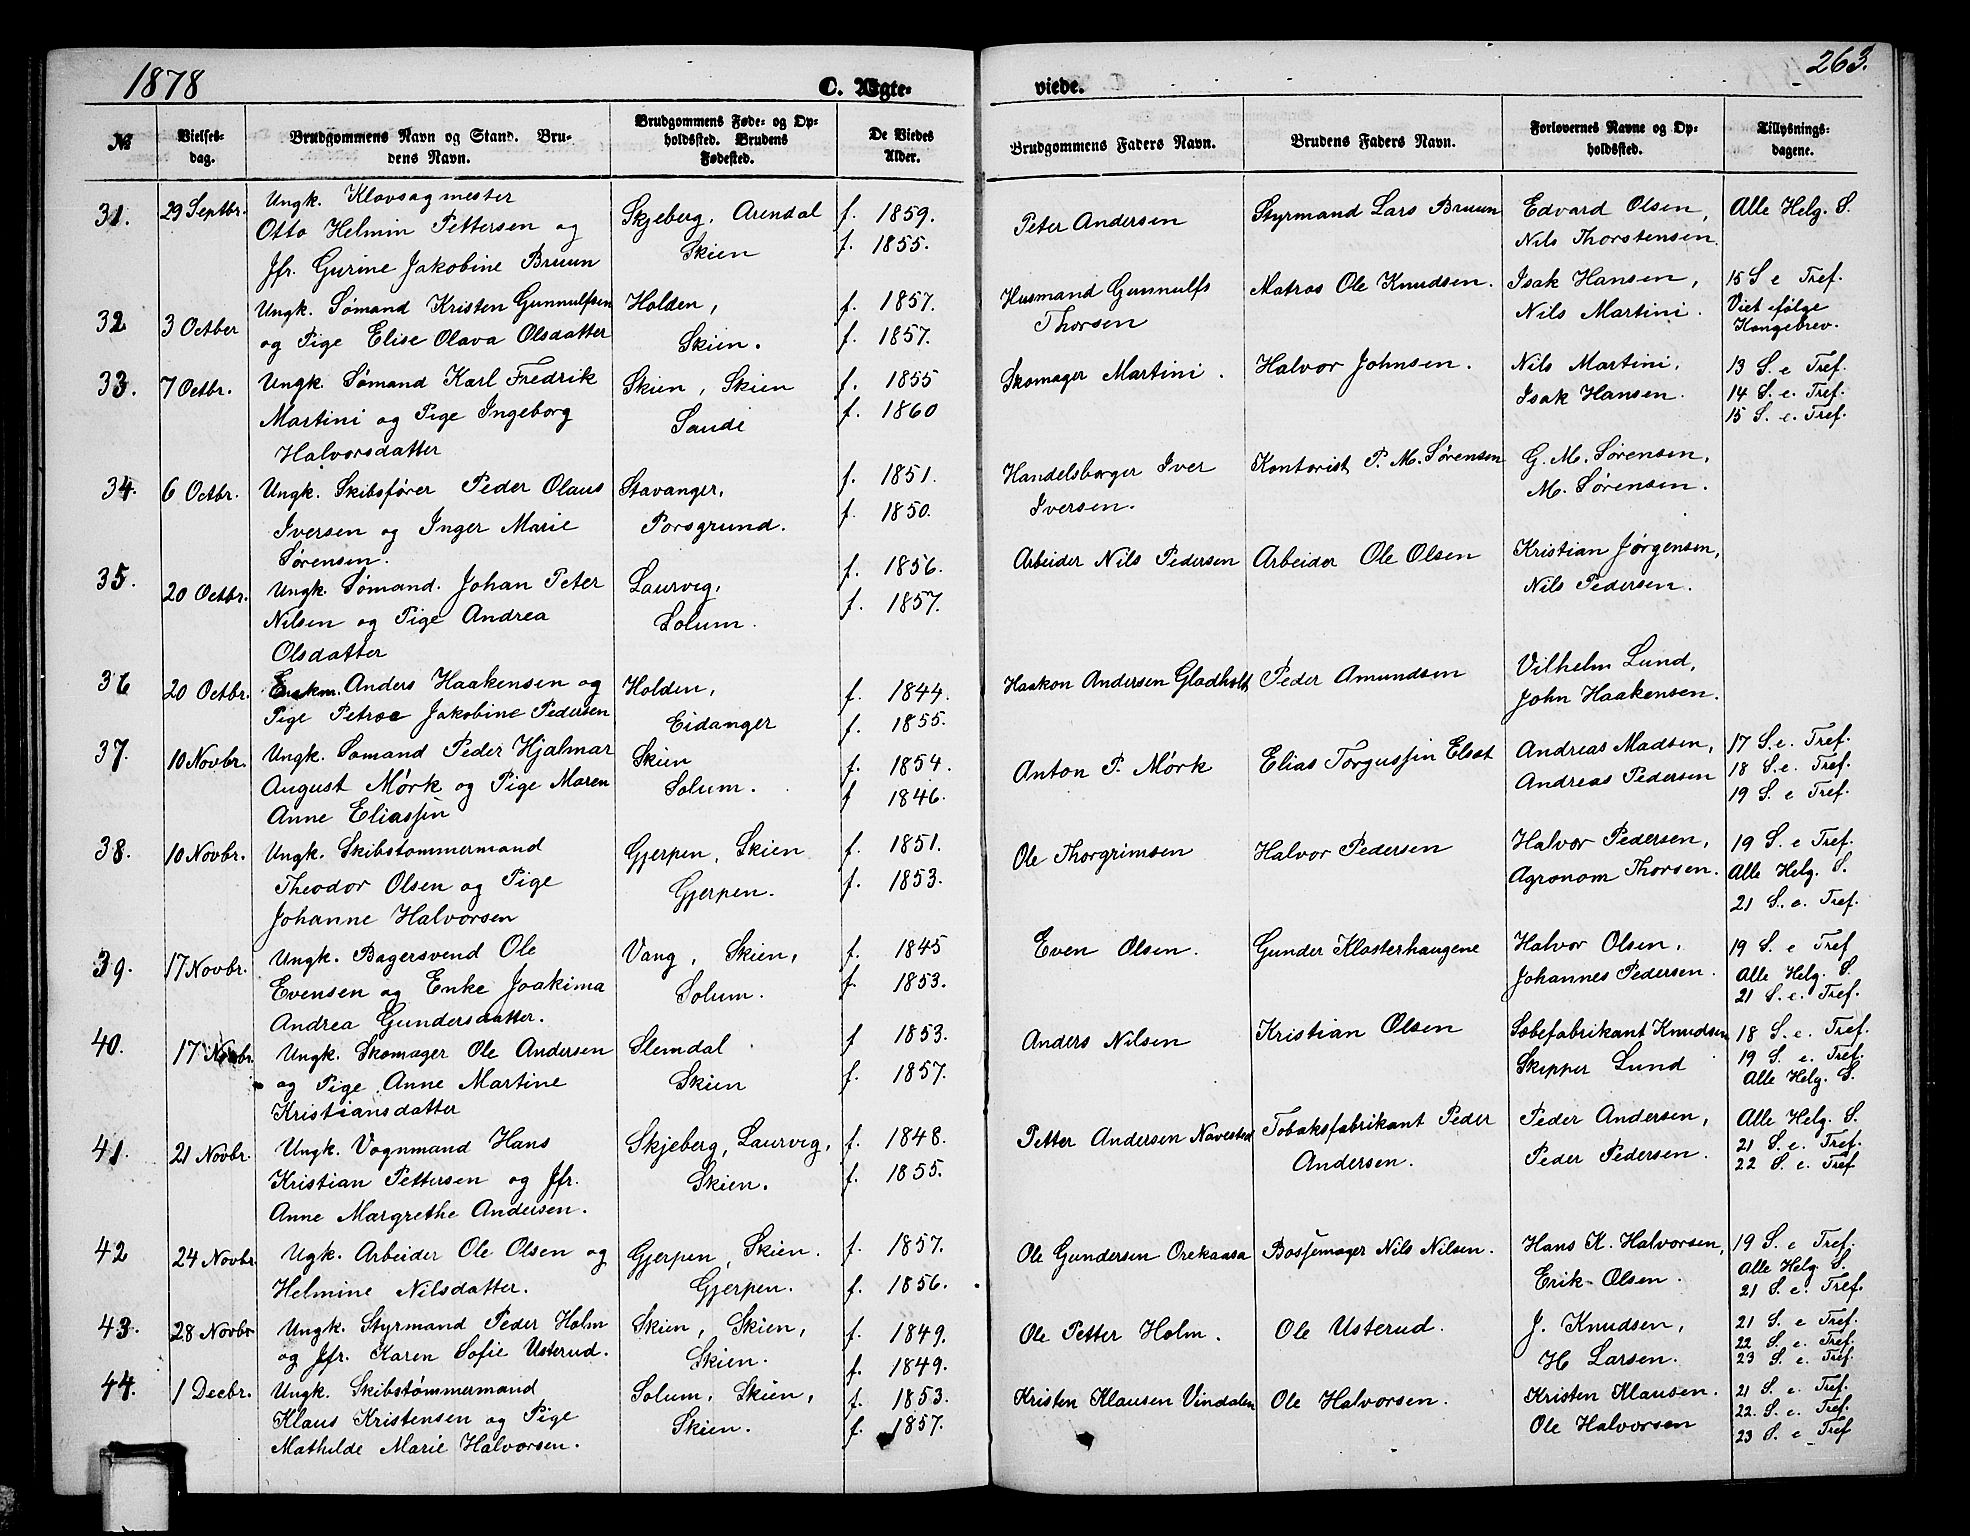 1878
263.
C. Ægte-
viede.
№
Vielses-
dag.
Brudgommens Navn og Stand. Bru-
dens Navn.
Brudgommens Føde- og Op-
holdssted. Brudens
Fødested.
De Viedes
Alder.
Brudgommens Faders Navn.
Brudens Faders Navn.
Forlovernes Navne og Op-
holdssted.
Tillysnings-
dagene.
31.
29 Septbr.
Ungk. Klovsagmester
Otto Helmin Pettersen og
Jfr. Gurine Jakobine Bruun
Skjeberg, Arendal
Skien
f. 1859.
f. 1855.
Peter Andersen
Styrmand Lars Bruun
Edvard Olsen,
Nils Thorstensen.
Alle Helg. S.
32
3 Octber
Ungk. Sømand Kristen Gunnulfsen
og Pige Elise Olava Olsdatter
Holden,
Skien.
f. 1857.
f. 1857.
Husmand Gunnulfs
Thorsen
Matros Ole Knudsen.
Isak Hansen,
Nils Martini.
15 S e Tref.
Viet ifølge
Kongebrev.
33.
7 Octbr.
Ungk. Sømand Karl Fredrik
Martini og Pige Ingeborg
Halvorsdatter
Skien, Skien
Saude
f. 1855
f. 1860
Skomager Martini.
Halvor Johnsen.
Nils Martini.
Isak Hansen.
13 S. e Tref.
14 S. e. Tref.
15 S. e. Tref.
34.
6 Octbr.
Ungk. Skibsfører Peder Olaus
Iversen og Inger Marie
Sørensen.
Stavanger,
Porsgrund.
f. 1851.
f. 1850.
Handelsborger Iver
Iversen.
Kontorist P. M. Sørensen
G. M. Sørensen,
M. Sørensen.
35.
20 Octbr.
Ungk. Sømand. Johan Peter
Nilsen og Pige Andrea
Olsdatter
Laurvig,
Solum.
f. 1856.
f. 1857.
Arbeider Nils Pedersen
Arbeider Ole Olsen
Kristian Jørgensen,
Nils Pedersen.
36
20 Octbr.
Enkm. Anders Haakensen og
Pige Petroe Jakobine Pedersen
Holden,
Eidanger
f. 1844.
f. 1855.
Haakon Andersen Gladholt
Peder Amundsen
Vilhelm Lund,
John Haakensen.
37.
10 Novbr.
Ungk. Sømand Peder Hjalmar
August Mørk og Pige Maren
Anne Eliassen
Skien
Solum.
f. 1854.
f 1846.
Anton P. Mørk
Elias Torgussen
Andreas Madsen,
Andreas Pedersen
17 S. e. Tref.
18 S. e. Tref.
19 S. e Tref.
38.
10 Novbr.
Ungk. Skibstømmermand
Theodor Olsen og Pige
Johanne Halvorsen
Gjerpen, Skien
Gjerpen.
f. 1851.
f. 1853.
Ole Thorgrimsen
Halvor Pedersen
Halvor Pedersen,
Agronom Thorsen.
19 S. e Tref.
Alle Helg. S.
21 S. e. Tref.
39.
17 Novbr.
Ungk. Bagersvend Ole
Evensen og Enke Joakima
Andrea Gundersdatter.
Vang, Skien,
Solum.
f. 1845
f. 1853.
Even Olsen.
Gunder Klosterhaugene
Halvor Olsen,
Johannes Pedersen.
19 S. e Tref
Alle Helg. S.
21 S. e. Tref.
40.
17 Novbr
Ungk. Skomager Ole Andersen
og Pige Anne Martine
Kristiansdatter
Slemdal
Skien
f 1853.
f. 1857.
Anders Nilsen
Kristian Olsen
Sæbefabrikant Knudsen
Skipper Lund
18 S. e. Tref.
19 S. e. Tref.
Alle Helg. S.
41.
21 Novbr.
Ungk. Vognmand Hans
Kristian Pettersen og Jfr.
Anne Margrethe Andersen.
Skjeberg, Laurvig,
Skien.
f. 1848.
f. 1855.
Petter Andersen Navestad
Tobaksfabrikant Peder
Andersen.
Peder Andersen,
Peder Pedersen.
Alle Helg. S.
21 S. e. Tref.
22 S. e. Tref
42
24 Novbr
Ugk. Arbeider Ole Olsen og
Helmine Nilsdatter.
Gjerpen, Skien.
Gjerpen.
f. 1857.
f. 1856.
Ole Gundersen Orekaasa
Bøssemager Nils Nilsen.
Hans K. Halvorsen,
Erik Olsen.
19 S. e Tref.
Alle Helg. S.
21 S. e. Tref.
43.
28 Novbr
Ungk. Styrmand Peder Holm
og Jfr. Karen Sofie Usterud.
Skien, Skien,
Skien.
f. 1849.
f. 1849.
Ole Petter Holm.
Ole Usterud.
J. Knudsen,
H Larsen.
21 S. e Tref.
22 S. e. Tref.
23 S. e. Tref.
44.
1 Decbr.
Ungk. Skibstømmermand
Klaus Kristensen og Pige
Mathilde Marie Halvorsen.
Solum, Skien,
Skien.
f. 1853.
f. 1857.
Kristen Klausen Vindalen
Ole Halvorsen.
Kristen Klausen.
Ole Halvorsen
21 S. e. Tref.
22. S. e. Tref.
23 S. e Tref